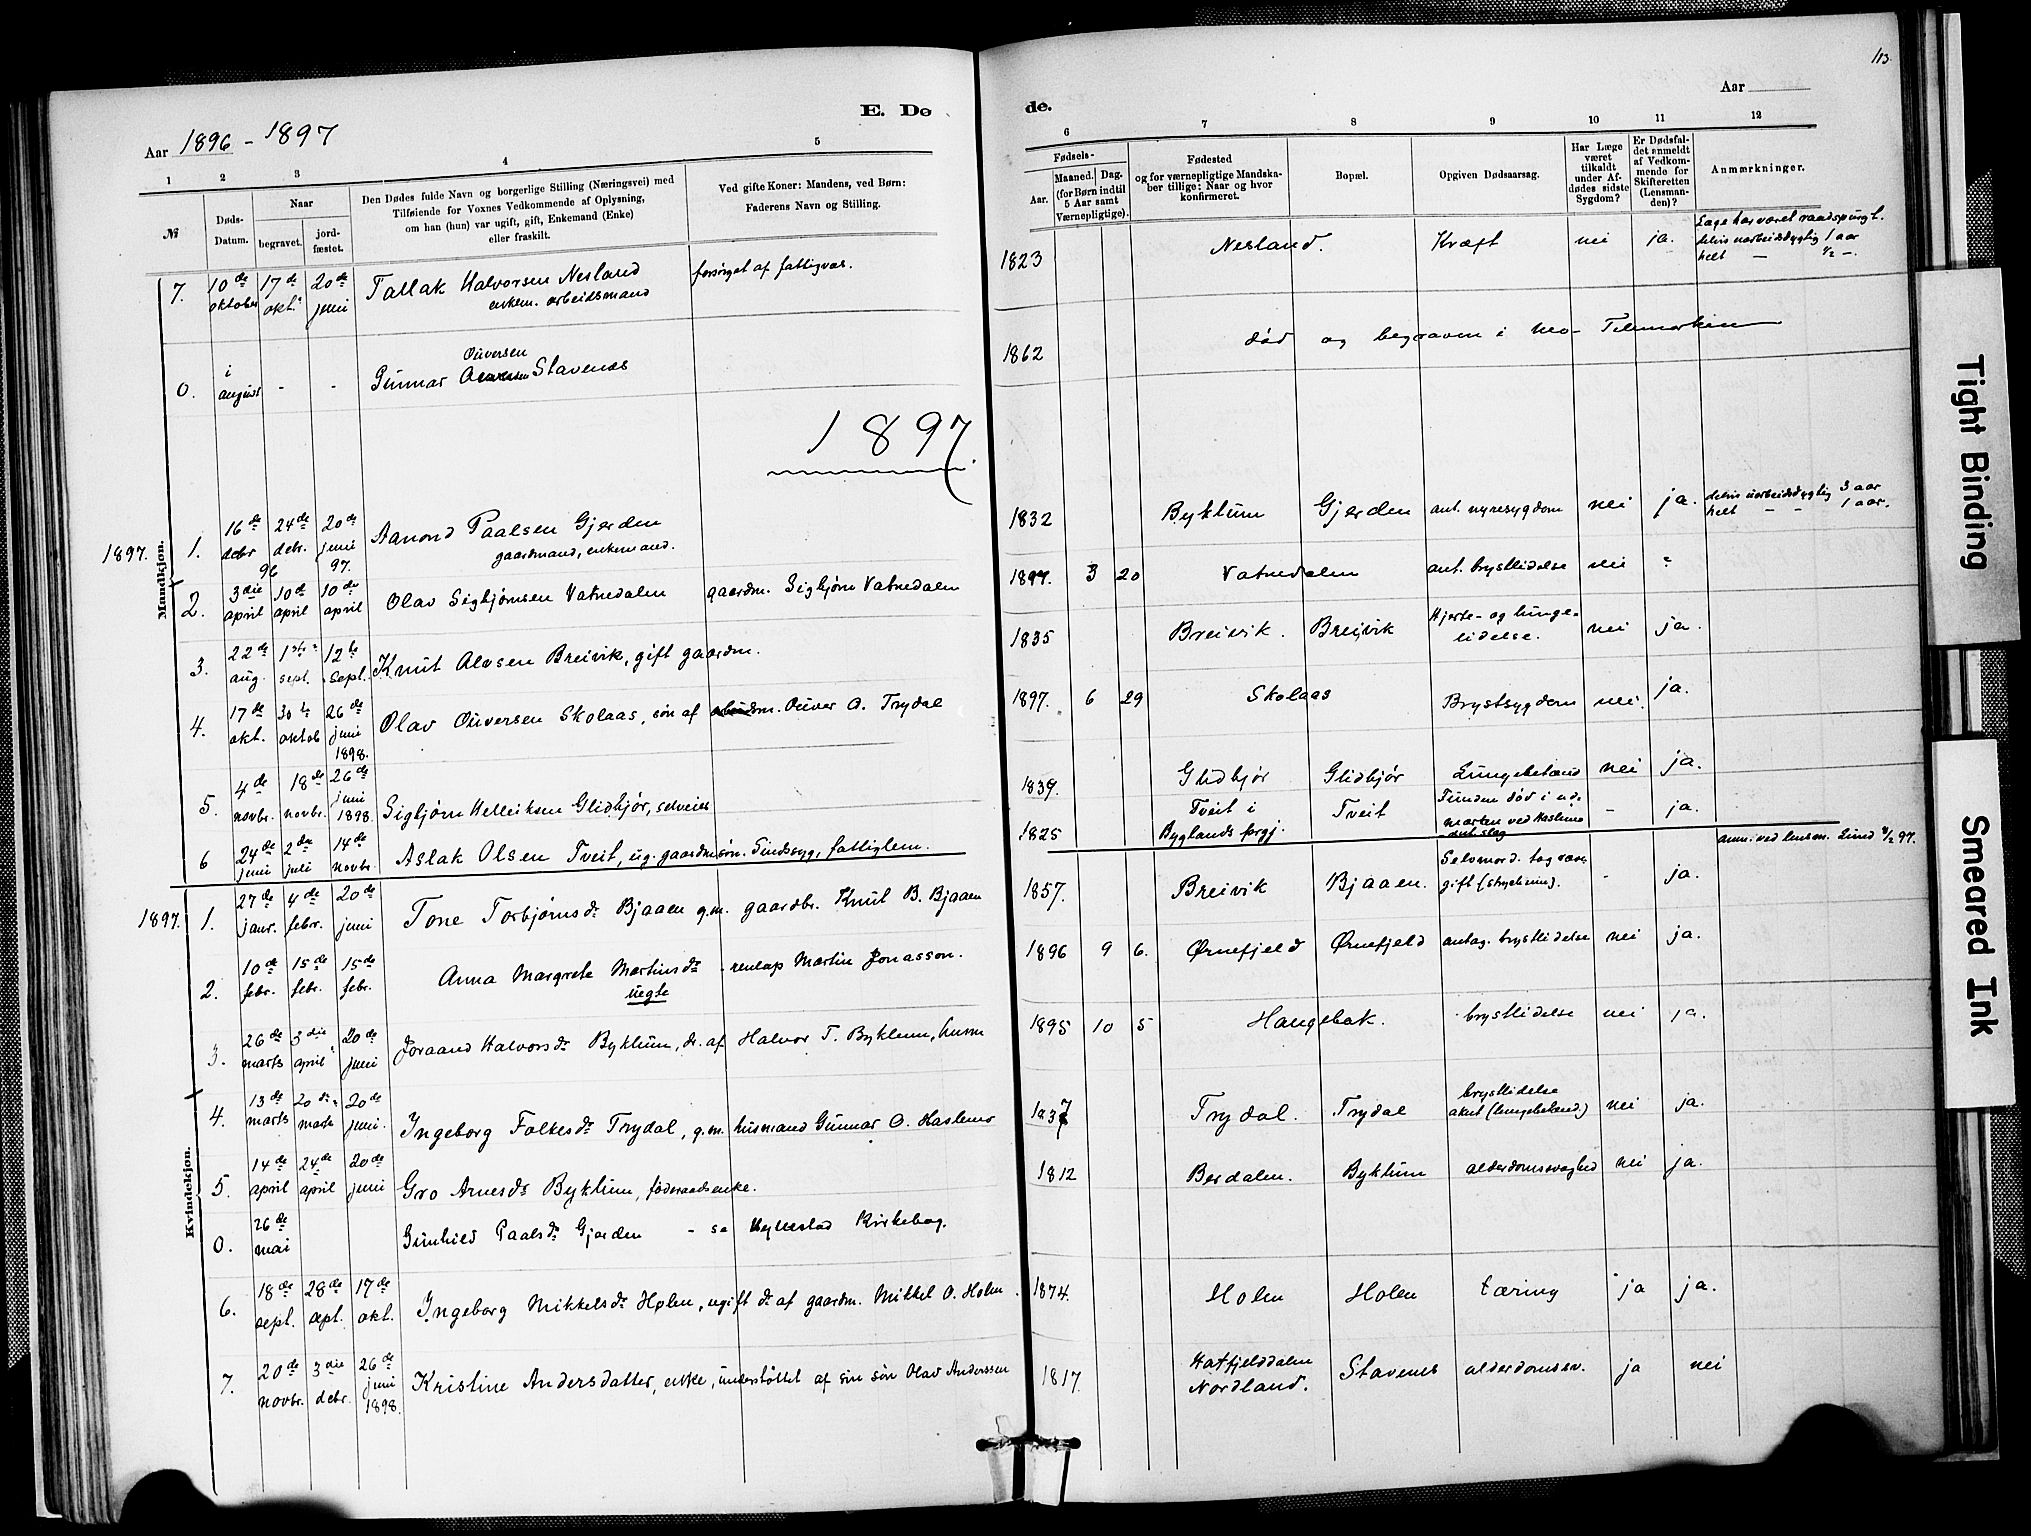 113.
E. Døde.
Aar 1896 - 1897
Aar
1 2 3 4 5 6 7 8 9 10 11 12
№
Døds-Datum.
Naar
begravet.
jordfæstet.
Den Dødes fulde Navn og borgerlige Stilling (Næringsvei) med
Tilføiende for Voxnes Vedkommende af Oplysning,
om han (hun) var ugift, gift, Enkemand (Enke)
eller fraskilt.
Ved gifte Koner: Mandens, ved Børn:
Faderens Navn og Stilling.
Fødsels-
Aar.
Maaned. Dag.
(for Børn indtil
5 Aar samt
Værnepligtige).
Fødested
og for værnepligtige Mandska-
ber tillige: Naar og hvor
konfirmeret.
Bopæl.
Opgiven Dødsaarsag.
Har Læge
været
tilkaldt
under Af-
dødes sidste
Sygdom?
Er Dødsfal-
det anmeldt
af Vedkom-
mende for
Skifteretten
(Lensman-
den)?
Anmærkninger.
7. 10de oktober 17de okt. 20de juni Tallak Halvorsen Nesland enkem. arbeidsmand forsørget af fattigvæs. 1823 Nesland. Kræft nei ja. Læge har været raadspurgt. delvis uarbeidsdygtig 1 aar helt — ½ —.
0. i august - - Gunnar Ouversen Stavenes 1862 død og begraven i Mo - Telemarken
1897.
Mandkjøn.
1897. 1. 16de debr 24de debr. 96 20de juni 97. Aanond Paalsen Gjerden gaardmand, enkemand. 1832 Byklum Gjerden ant. nyresygdom nei ja. delvis uarbeidsdygtig 3 aar helt — - 1 aar.
2. 3die april 10de april 10de april Olav Sigbjørnsen Vatnedalen gaardm. Sigbjørn Vatnedalen 1897. 3 20 Vatnedalen ant. brystlidelse nei "
3. 22de aug. 1ste sept. 12te sept. Knut Alvsen Breivik, gift gaardm. 1835 Breivik. Breivik Hjerte- og lungelidelse. nei ja.
4. 17de okt. 30te oktob 26de juni 1898. Olav Ouversen Skolaas, søn af arbeidsm. Ouver O. Trydal 1897. 6 29 Skolaas Brystsygdom nei. ja.
5. 4de novbr. 18de novbr. 26de juni 1898. Sigbjørn Helleiksen Glidbjør, selveier 1839. Glidbjør Glidbjør Lungebetænd nei ja.
6 24de juni 2den juli 14de novbr. Aslak Olsen Tveit, ug. gaardmsøn. Sindssyg, fattiglem. 1825 Tveit i Byglands prgj. Tveit Funden død i udmarken ved Haslemo - ja.
Kvindekjøn.
1897. 1. 27de janr. 4de febr. 20de juni Tone Torbjørnsdr Bjaaen g.m. gaardbr. Knut B. Bjaaen 1857. Breivik Bjaaen. Selvmord. tog rævegift (strychnin). - ja. anm. ved lensm. Lund 4/2 97.
2. 10de febr. 15de febr. 15de febr. Anna Margrete Martinsdr uegte Martin Jonasson. 1896 9 6. Ørnefjeld Ørnefjeld antag. brystlidelse nei ja.
3. 26de marts 3die april 20de juni Joraand Halvorsdr Byklum, dr. af Halvor T. Byklum, husm 1895 10 5 Haugebak. brystlidelse nei ja.
4. 13de marts 20de marts 20de juni. Ingeborg Folkesdr Trydal, g.m. husmand Gunnar O. Haslemo 1837 Trydal. Trydal brystlidelse akut (lungebetænd.) nei ja.
5. 14de april 24de april 20de juni Gro Arnesdr Byklum, føderaadsenke. 1812 Berdalen. Byklum alderdomssvaghed nei ja.
0. 26de mai Gunhild Paalsdr Gjerden - se Hyllestad Kirkebog.
6. 18de sept. 28de sept. 17de okt. Ingeborg Mikkelsdr Holen, ugift dr af gaardm. Mikkel O. Holen. 1874. Holen Holen tæring ja ja.
7. 20de novbr. 3die debr. 26de juni 1898. Kristine Andersdatter, enke, understøttet af sin søn Olav Anderssen 1817. Hatfjelddalen Nordland. Stavenes alderdomssv. ja nei
Tight Binding
Smeared Ink